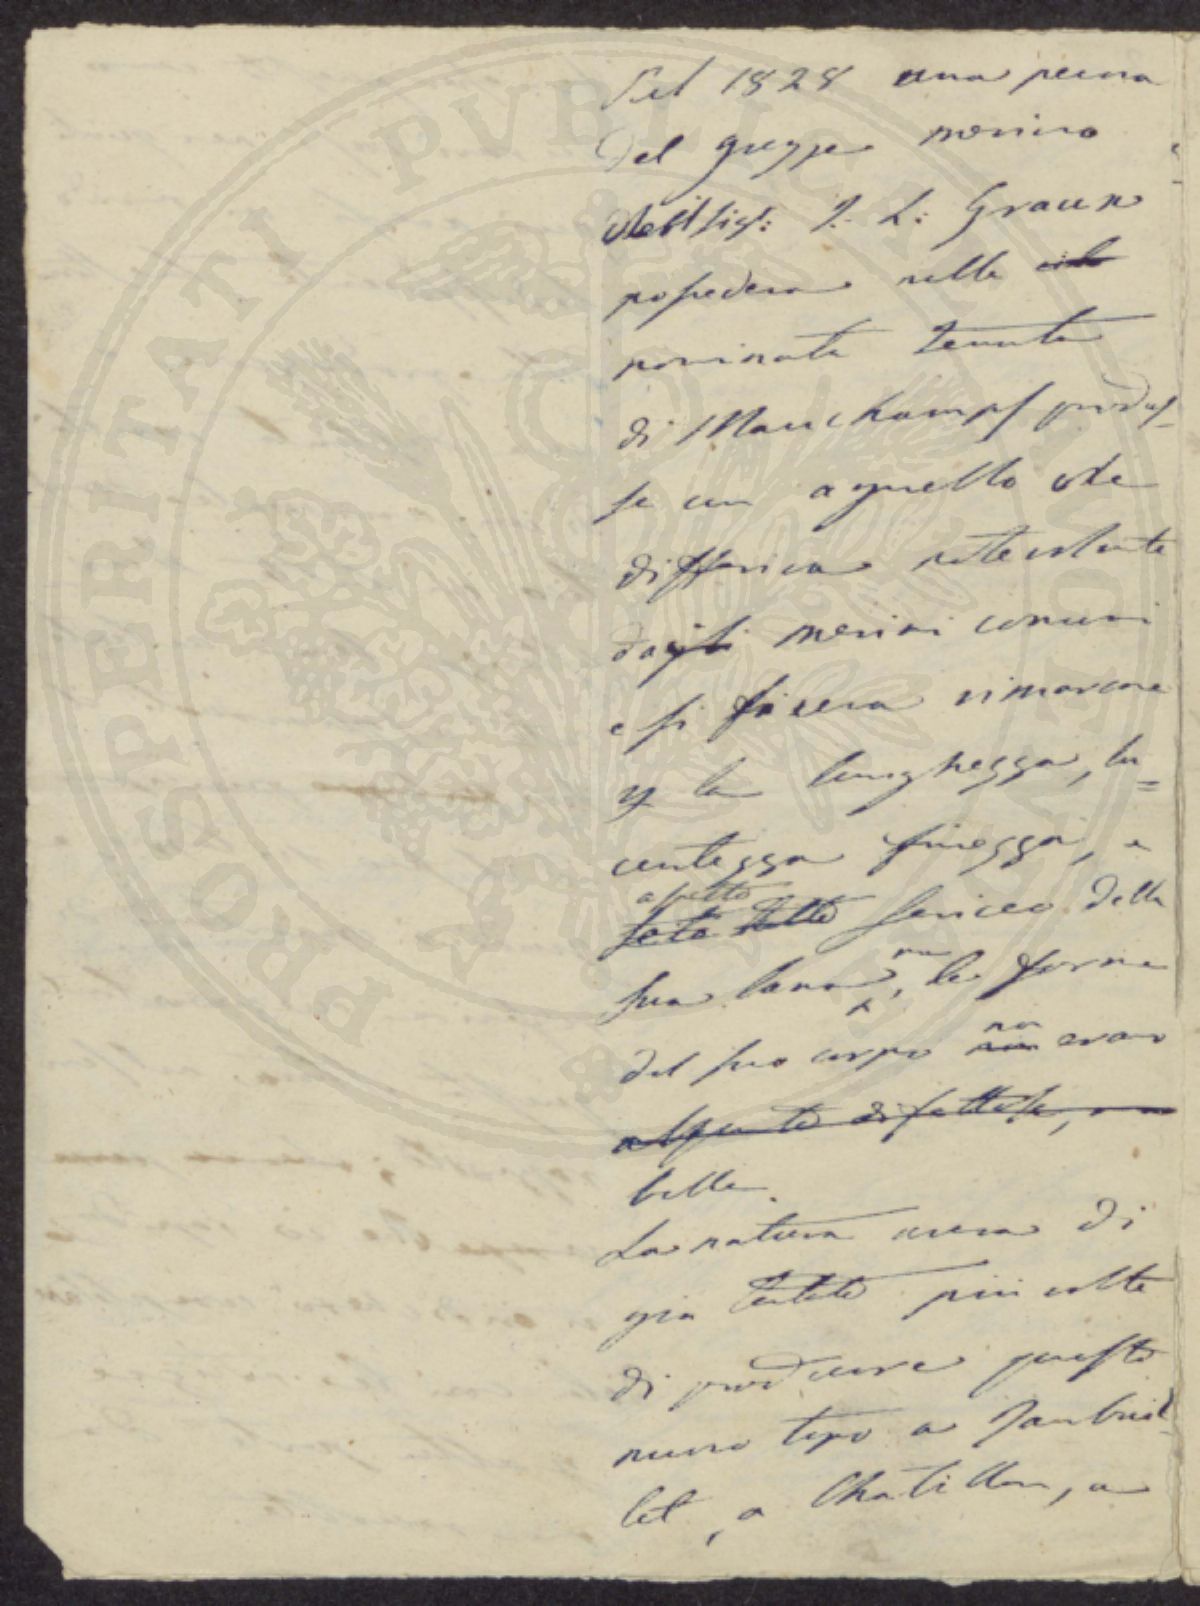 Nel 1828 una pecora
del gregge merino
del sig: J. L: Graux
possedeva nella
nominata tenuta
di Mauchamps produs-
se un agnello che
differiva notevolmente
dagli merini comuni
e si faceva rimarcare
per la lunghezza, lu=
centezza finezza, e
aspetto
sericeo della
sua lana, ma le forme
del suo corpo non erano
belle.
La natura aveva di
già tentato più volte
di produrre questo
nuovo tipo a Rambouil-
let, a Chatillon, a
PROSPERITATI PVBLICAE